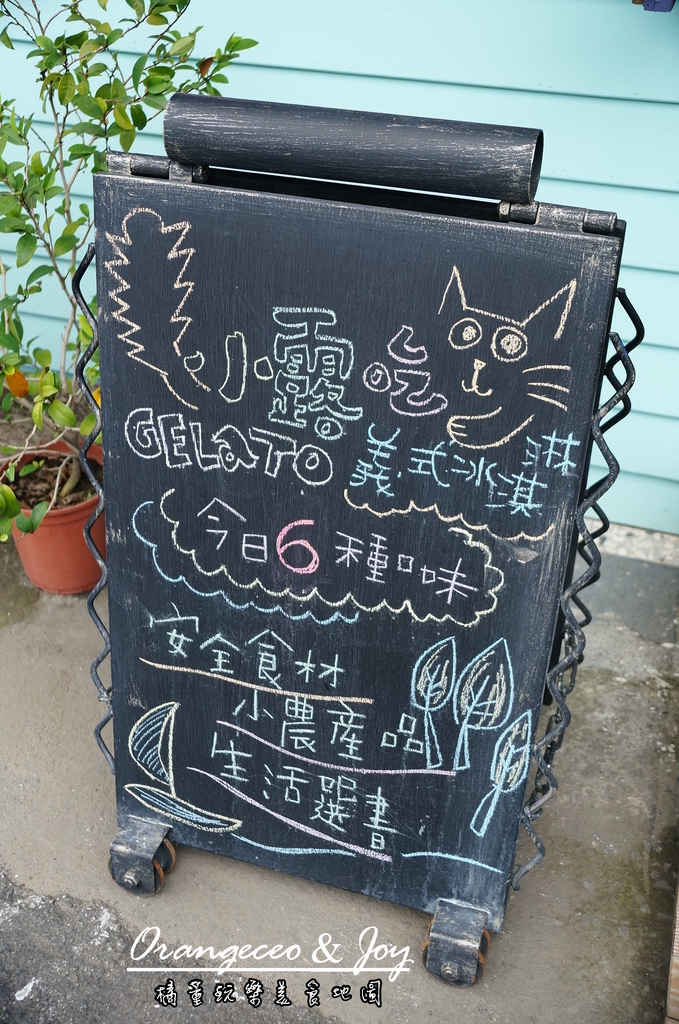 小露吃
GELATO 義式冰淇淋
今日6種口味
安全食材
小農產品
生活選書
Orangeceo & Joy
橘童玩樂美食地圖